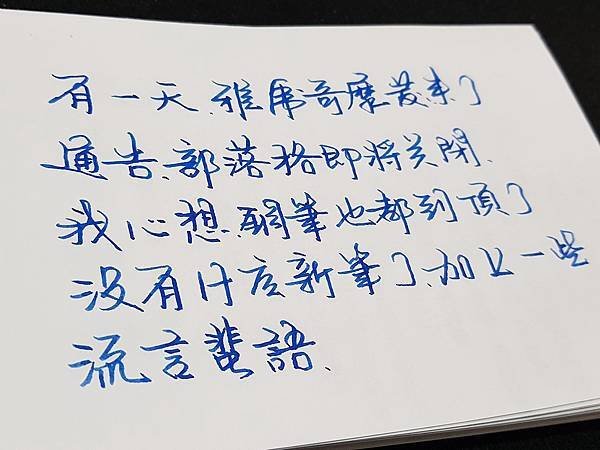 有一天、雅虎奇摩發来了
通告、部落格即將关閉、
我心想鋼筆也都到頂了
没有什麼新筆了、加上一些
流言蜚語、